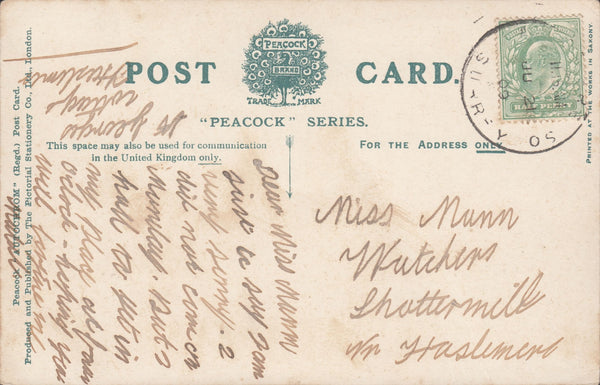 POST CARD.
PEACOCK
BRAND
TRADE MARK
"PEACOCK" SERIES.
This space may also be used for communication
in the United Kingdom only.
FOR THE ADDRESS ONLY
HALFPENNY
PRINTED AT THE WORKS IN SAXONY.
Peacock "AUTOCHROM" (Regd.) Post Card.
Produced and Published by The Pictorial Stationery Co., Ltd., London.
St Georges
Cottage
Haslemere
Dear Miss Munn
Just to say I am
very sorry. I
did not come on
Sunday. But I
had to set in
my place at four
oclock - hoping you
will
Miss Munn
Shottermill
Nr Haslemere